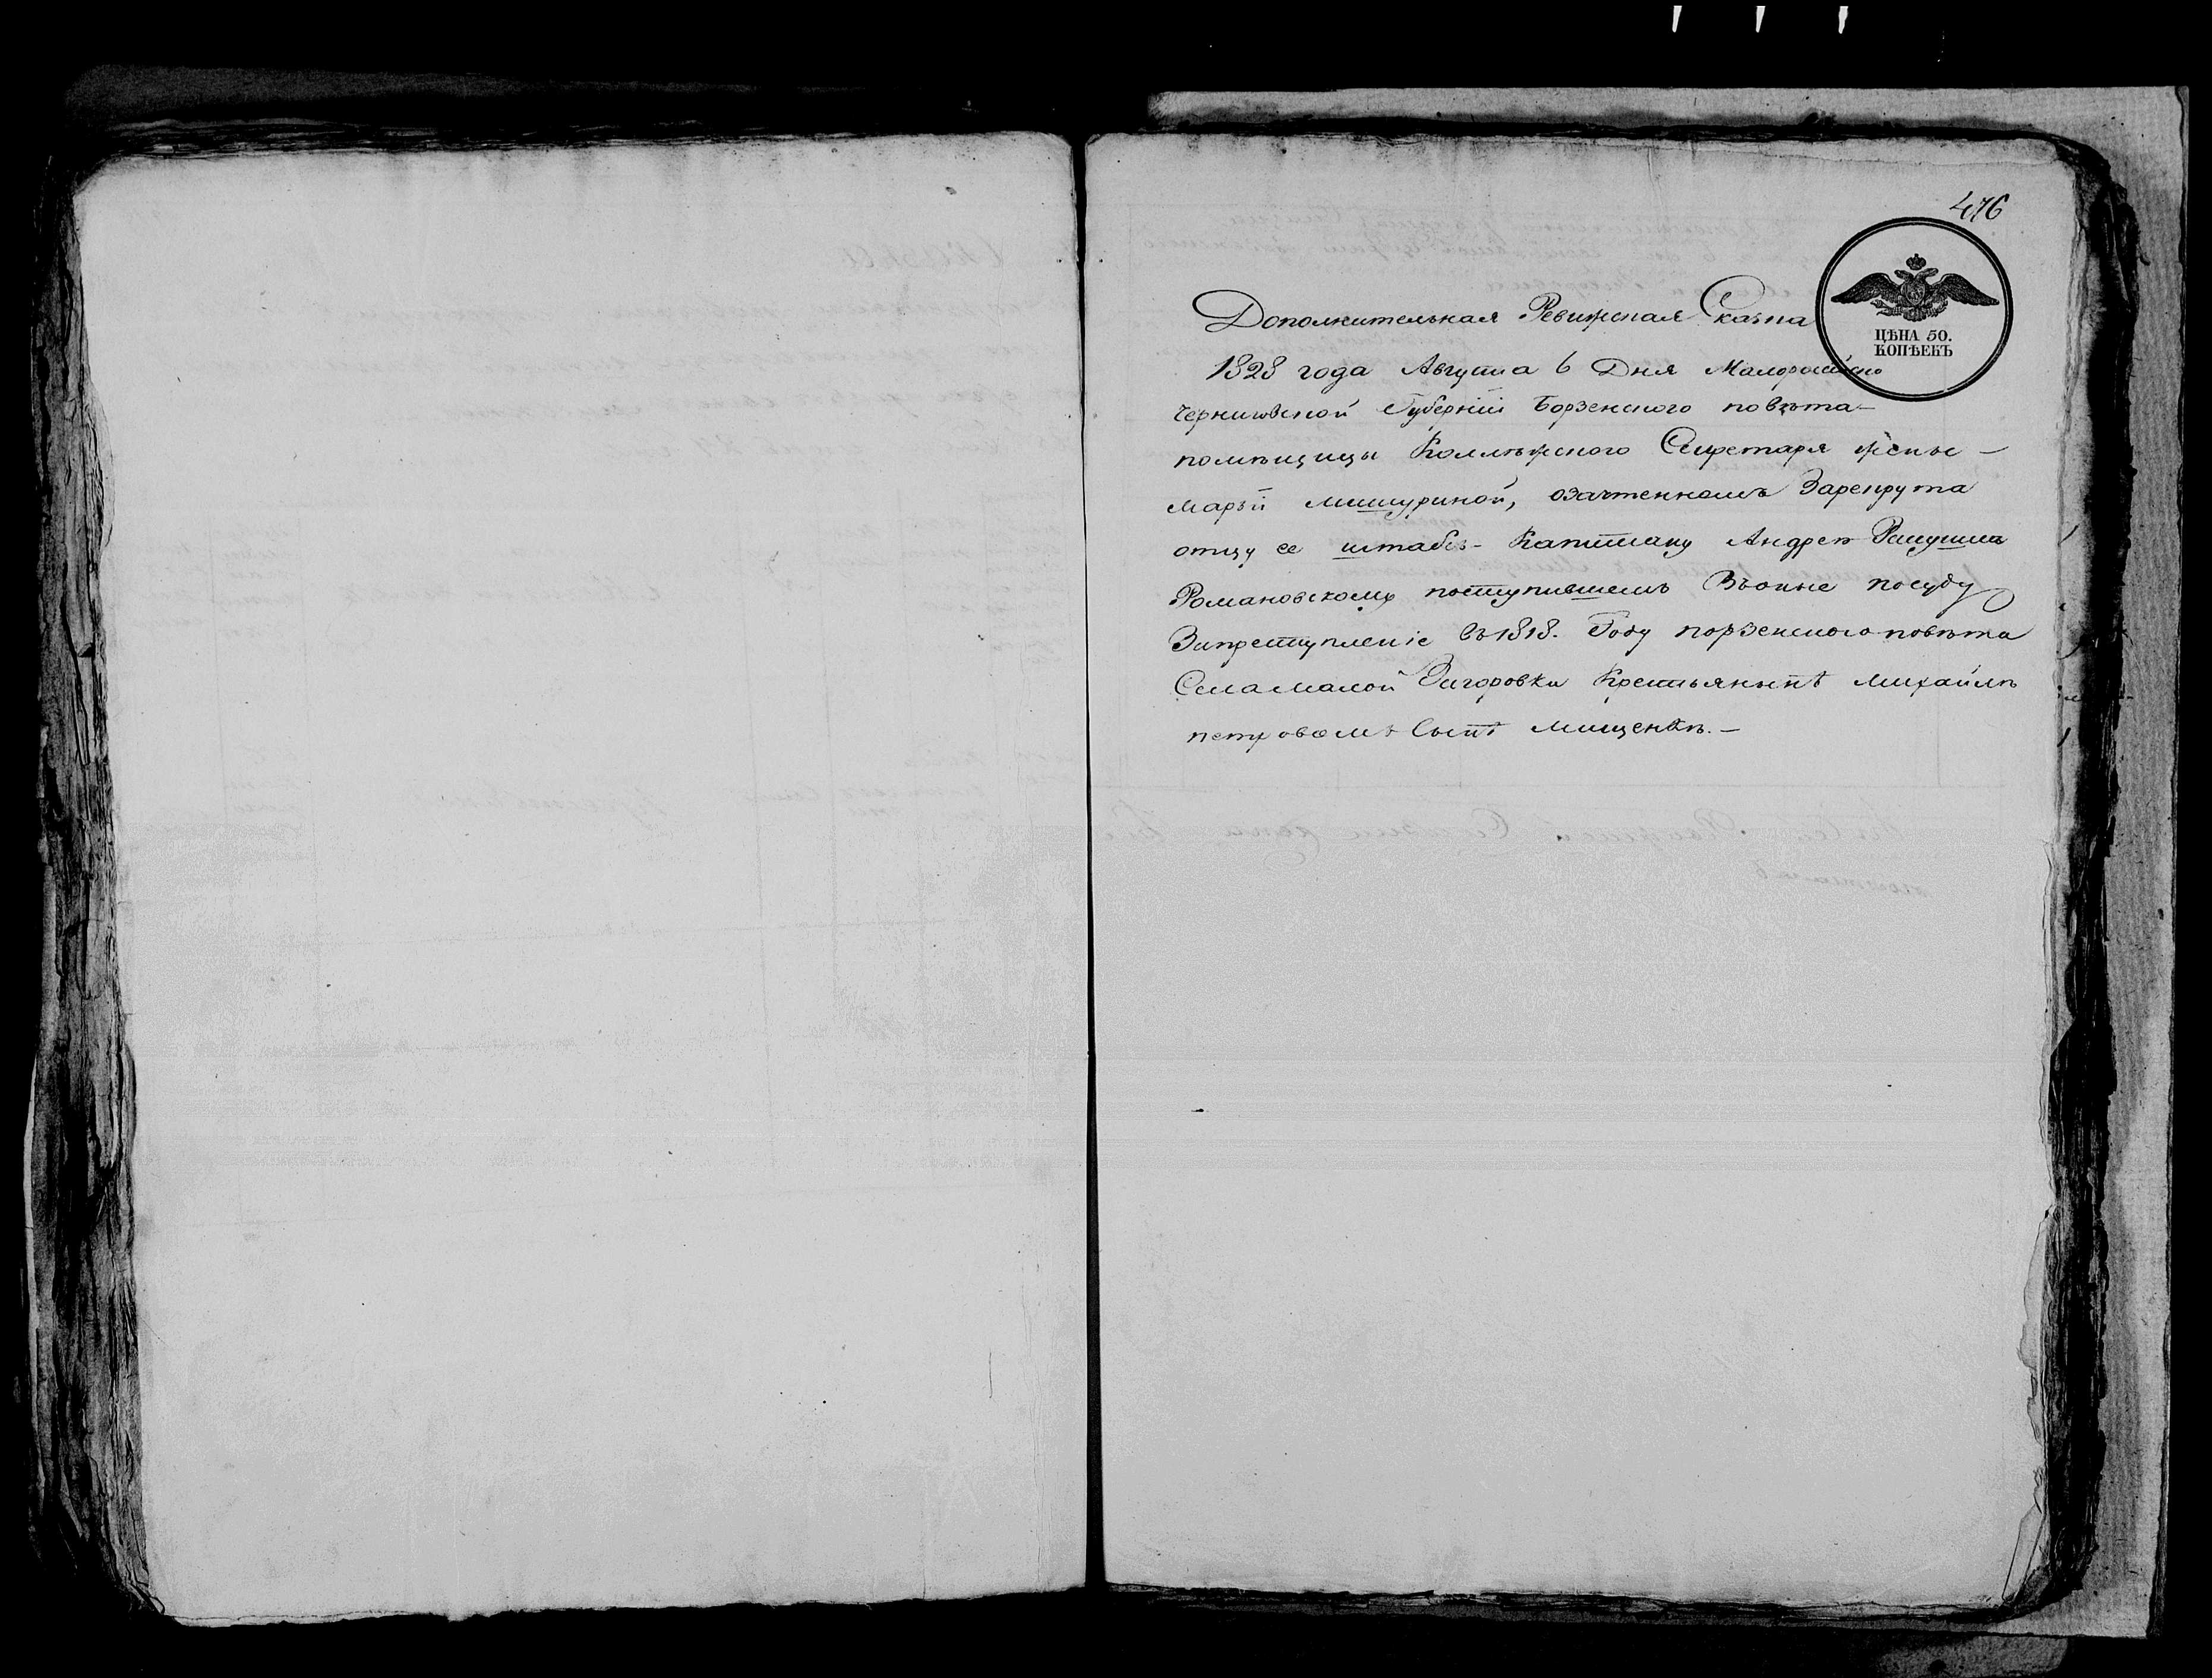 476
ЦѢНА 50.
КОПѢЕКЪ
Дополнительная Ревижская Сказка
1828 года Августа 6 Дня Малоросийско
черниговской Губерніи Борзенского повѣта
помѣщицы Коллѣжского Секретаря жены —
Марьи мишуриной, озачтенномъ Зарекрута
отцу ее штабсъ-Капитану Андрею
Романовскому поступившемъ Въоные посуду
Запреступленіе въ 1818. Году порзенского повѣта
Села малой Загоровки Крестьянынѣ михайлѣ
петровомъ Сынѣ мищенкѣ. —